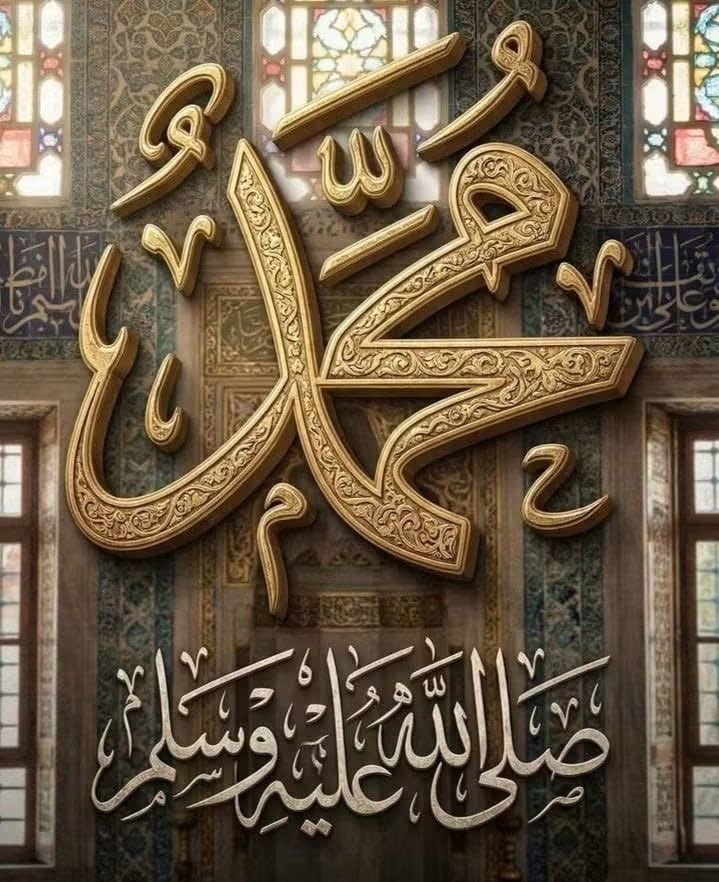 مُحَمَّدٌ
صَلَّى اللَّهُ عَلَيْهِ وَسَلَّمَ